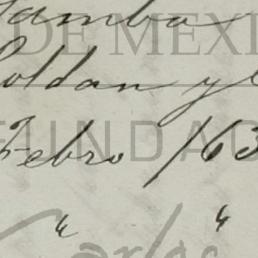 Tamba
DE MEXIC
Roldan y C
FUNDAC
Febro /63
" "
Carlos